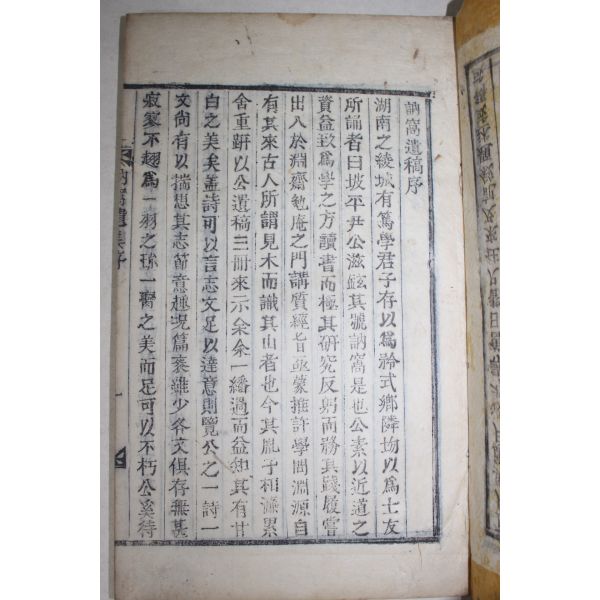 訥窩遺稿序
湖南之綾城有篤學君子存以爲矜式鄕隣歿以爲士友
所誦者曰坡平尹公滋鉉其號訥窩是也公素以近道之
資益致爲學之方讀書而極其硏究反躬而務其踐履嘗
出入於淵齋勉庵之門講質經旨亟蒙推許學問淵源自
有其來古人所謂見木而識其山者也今其胤子相濂累
舍重趼以公遺稿三冊來示余余一繙過而益知其有甘
白之美矣盖詩可以言志文足以達意則覽公之一詩一
文尙有以揣想其志節意趣况篇袠雖少各文俱存無甚
寂寥不翅爲一羽之珎一臠之美而足可以不朽公奚待
訥窩遺集序
一